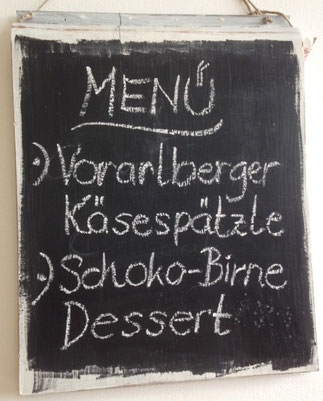 MENÜ
:) Vorarlberger
Käsespätzle
:) Schoko-Birne
Dessert